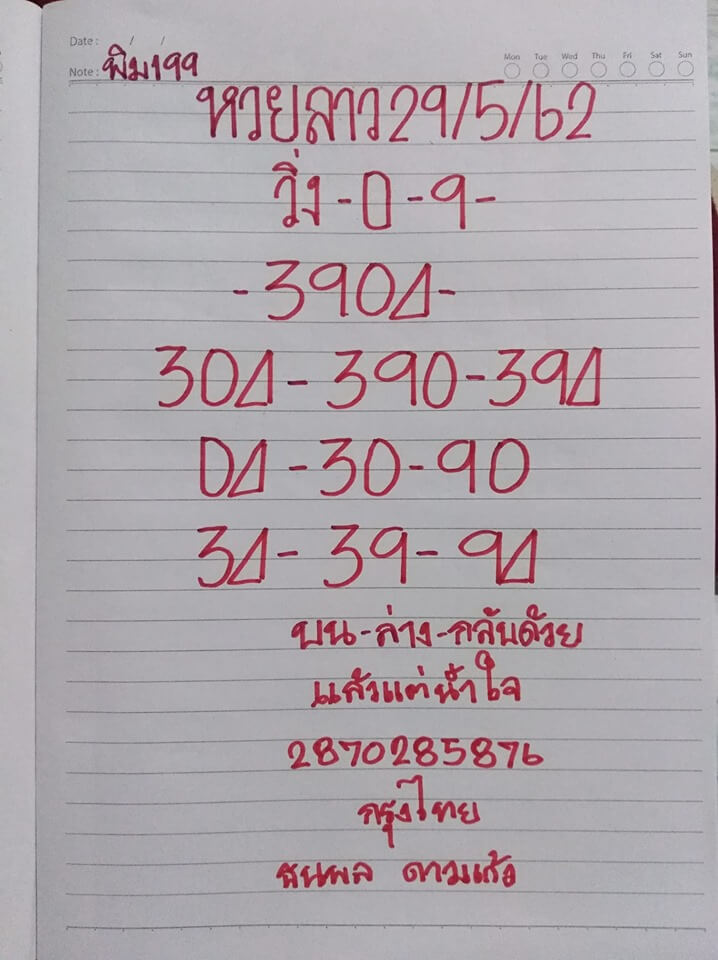 Date : / /
Note : พิม199
Mon Tue Wed Thu Fri Sat Sun
หวยลาว29/5/62
วิ่ง-0-9-
-3904-
304-390-394
04-30-90
34-39-94
บน-ล่าง-กลับด้วย
แล้วแต่น้ำใจ
2870285876
กรุงไทย
ธนพล